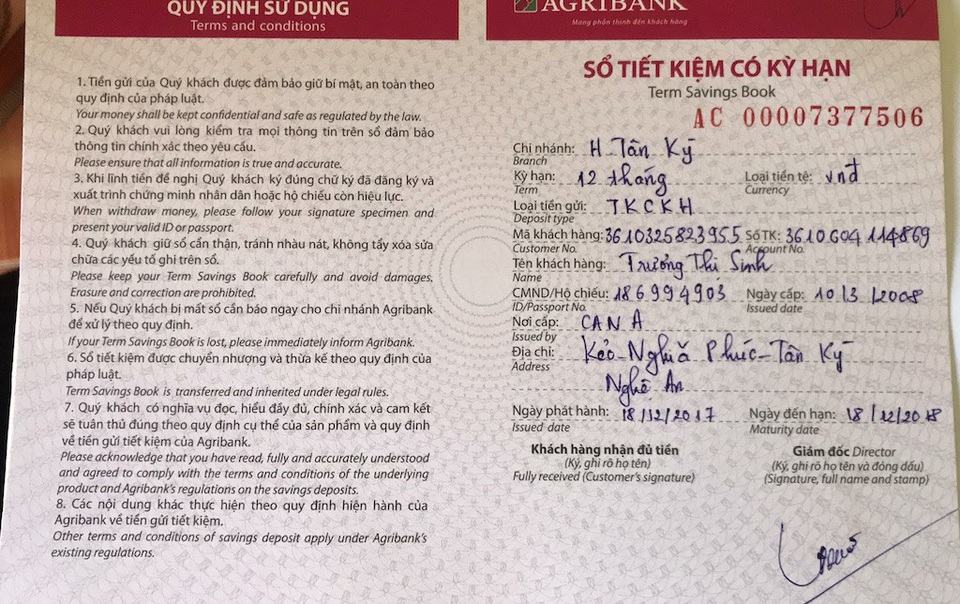 QUY ĐỊNH SỬ DỤNG
Terms and conditions
1. Tiền gửi của Quý khách được đảm bảo giữ bí mật, an toàn theo
quy định của pháp luật.
Your money shall be kept confidential and safe as regulated by the law.
2. Quý khách vui lòng kiểm tra mọi thông tin trên sổ đảm bảo
thông tin chính xác theo yêu cầu.
Please ensure that all information is true and accurate.
3. Khi lĩnh tiền đề nghị Quý khách ký đúng chữ ký đã đăng ký và
xuất trình chứng minh nhân dân hoặc hộ chiếu còn hiệu lực.
When withdraw money, please follow your signature specimen and
present your valid ID or passport.
4. Quý khách giữ sổ cẩn thận, tránh nhàu nát, không tẩy xóa sửa
chữa các yếu tố ghi trên sổ.
Please keep your Term Savings Book carefully and avoid damages.
Erasure and correction are prohibited.
5. Nếu Quý khách bị mất sổ cần báo ngay cho chi nhánh Agribank
để xử lý theo quy định.
If your Term Savings Book is lost, please immediately inform Agribank.
6. Sổ tiết kiệm được chuyển nhượng và thừa kế theo quy định của
pháp luật.
Term Savings Book is transferred and inherited under legal rules.
7. Quý khách có nghĩa vụ đọc, hiểu đầy đủ, chính xác và cam kết
sẽ tuân thủ đúng theo quy định cụ thể của sản phẩm và quy định
về tiền gửi tiết kiệm của Agribank.
Please acknowledge that you have read, fully and accurately understood
and agreed to comply with the terms and conditions of the underlying
product and Agribank's regulations on the savings deposits.
8. Các nội dung khác thực hiện theo quy định hiện hành của
Agribank về tiền gửi tiết kiệm.
Other terms and conditions of savings deposit apply under Agribank's
existing regulations.
AGRIBANK
Mang phồn thịnh đến khách hàng
SỔ TIẾT KIỆM CÓ KỲ HẠN
Term Savings Book
AC 00007377506
Chi nhánh: H Tân Kỳ
Branch
Kỳ hạn: 12 tháng Loại tiền tệ: vnđ
Term Currency
Loại tiền gửi: TKCKH
Deposit type
Mã khách hàng: 3610325823955 Số TK: 3610604114869
Customer No. Account No.
Tên khách hàng: Trương Thị Sinh
Name
CMND/Hộ chiếu: 186994903 Ngày cấp: 10/3/2008
ID/Passport No. Issued date
Nơi cấp: CAN A
Issued by
Địa chỉ: Kẻo-Nghĩa Phúc-Tân Kỳ
Address
Nghệ An
Ngày phát hành: 18/12/2017 Ngày đến hạn: 18/12/2018
Issued date Maturity date
Khách hàng nhận đủ tiền Giám đốc Director
(Ký, ghi rõ họ tên) (Ký, ghi rõ họ tên và đóng dấu)
Fully received (Customer's signature) (Signature, full name and stamp)